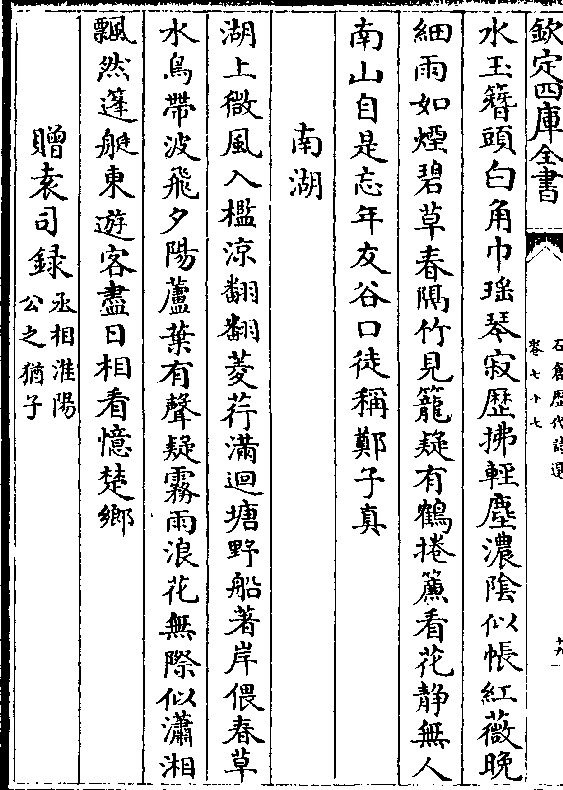 欽定四庫全書
石倉歷代詩選
卷七十七
十九
水玉簪頭白角巾瑶琴寂歴拂輕塵濃陰似帳紅薇晚
細雨如煙碧草春隔竹見籠疑有鶴捲簾看花静無人
南山自是忘年友谷口徒稱鄭子真
南湖
湖上微風入檻涼翻翻菱荇滿迴塘野船著岸偎春草
水鳥帶波飛夕陽蘆葉有聲疑霧雨浪花無際似瀟湘
飄然蓬艇東遊客盡日相看憶楚鄉
贈袁司録丞相淮陽公之猶子